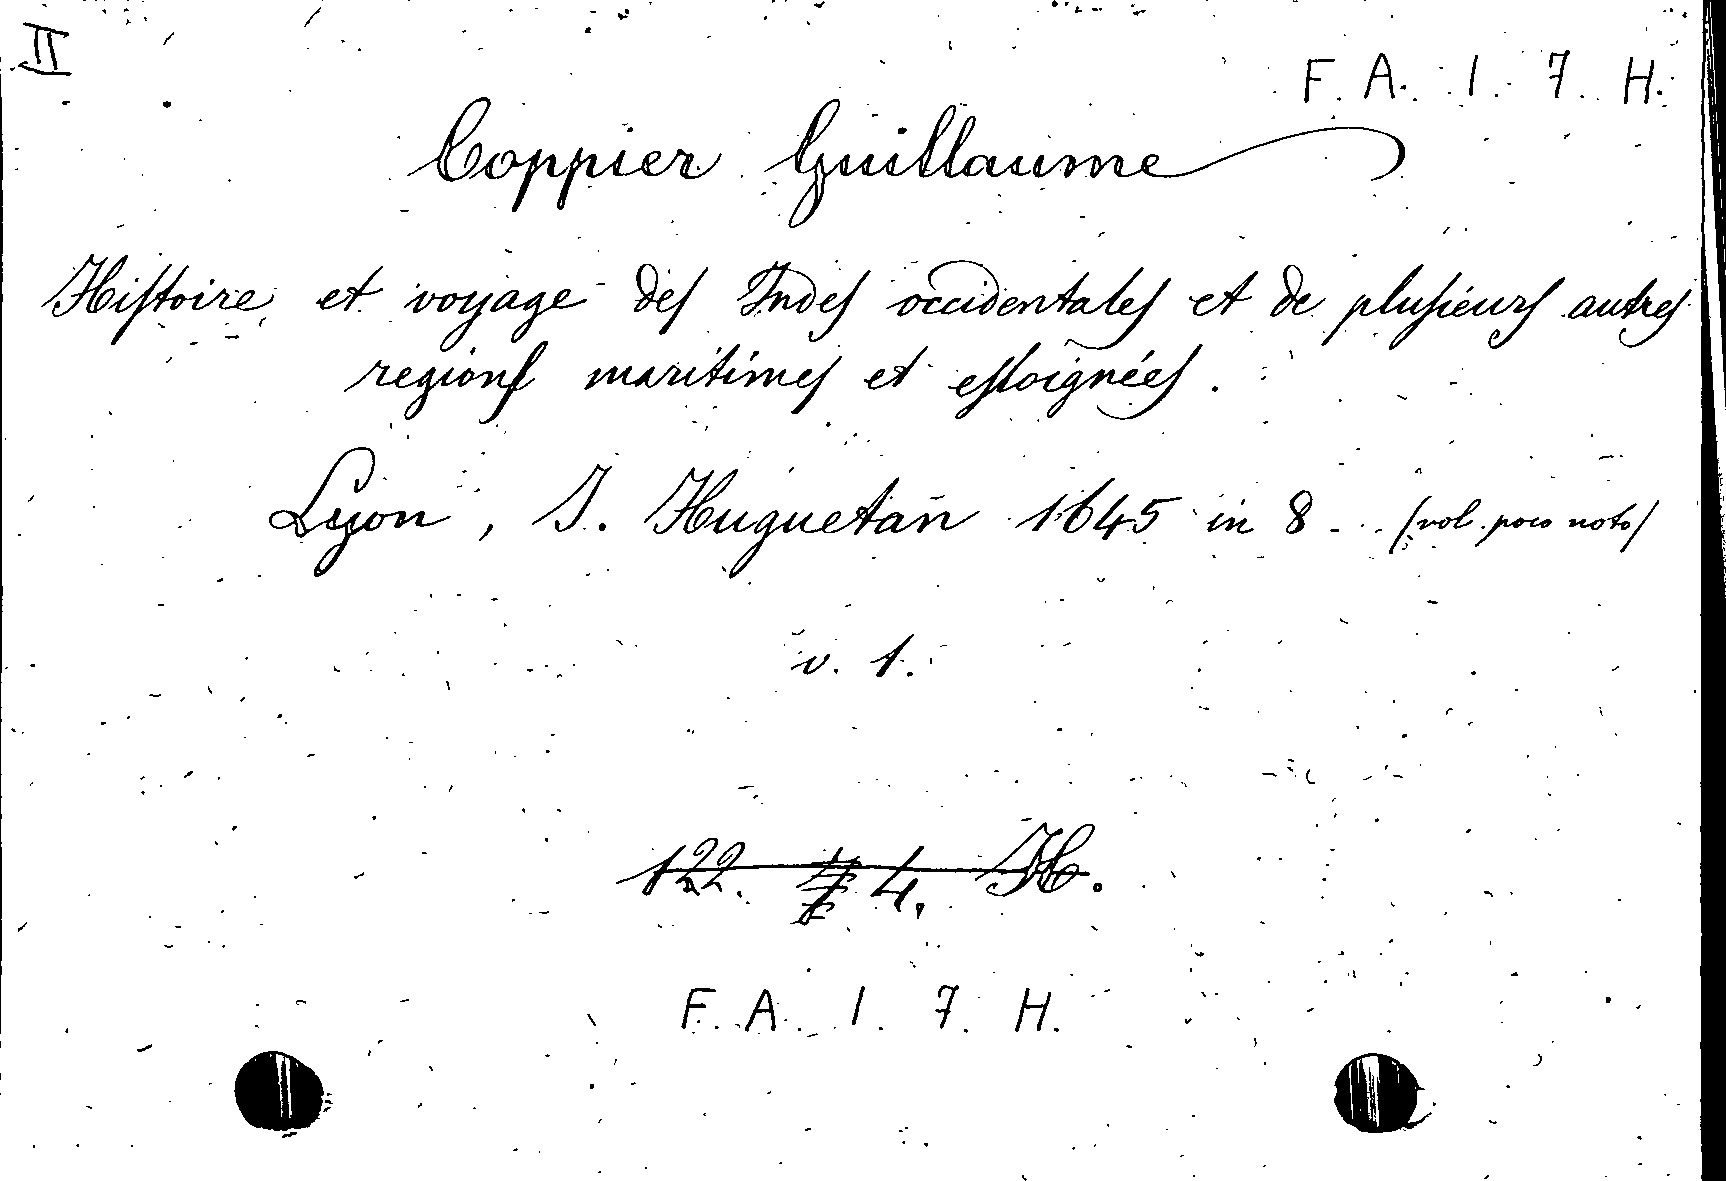 II
F. A. I. 7. H.
Coppier Guillaume
Histoire et voyage des Indes occidentales et de plusieurs autres
regions maritimes et esloignées.
Lyon, J. Huguetan 1645 in 8... (vol. poco noto)
v. 1.
122. 7 4. H.
F. A. I. 7. H.